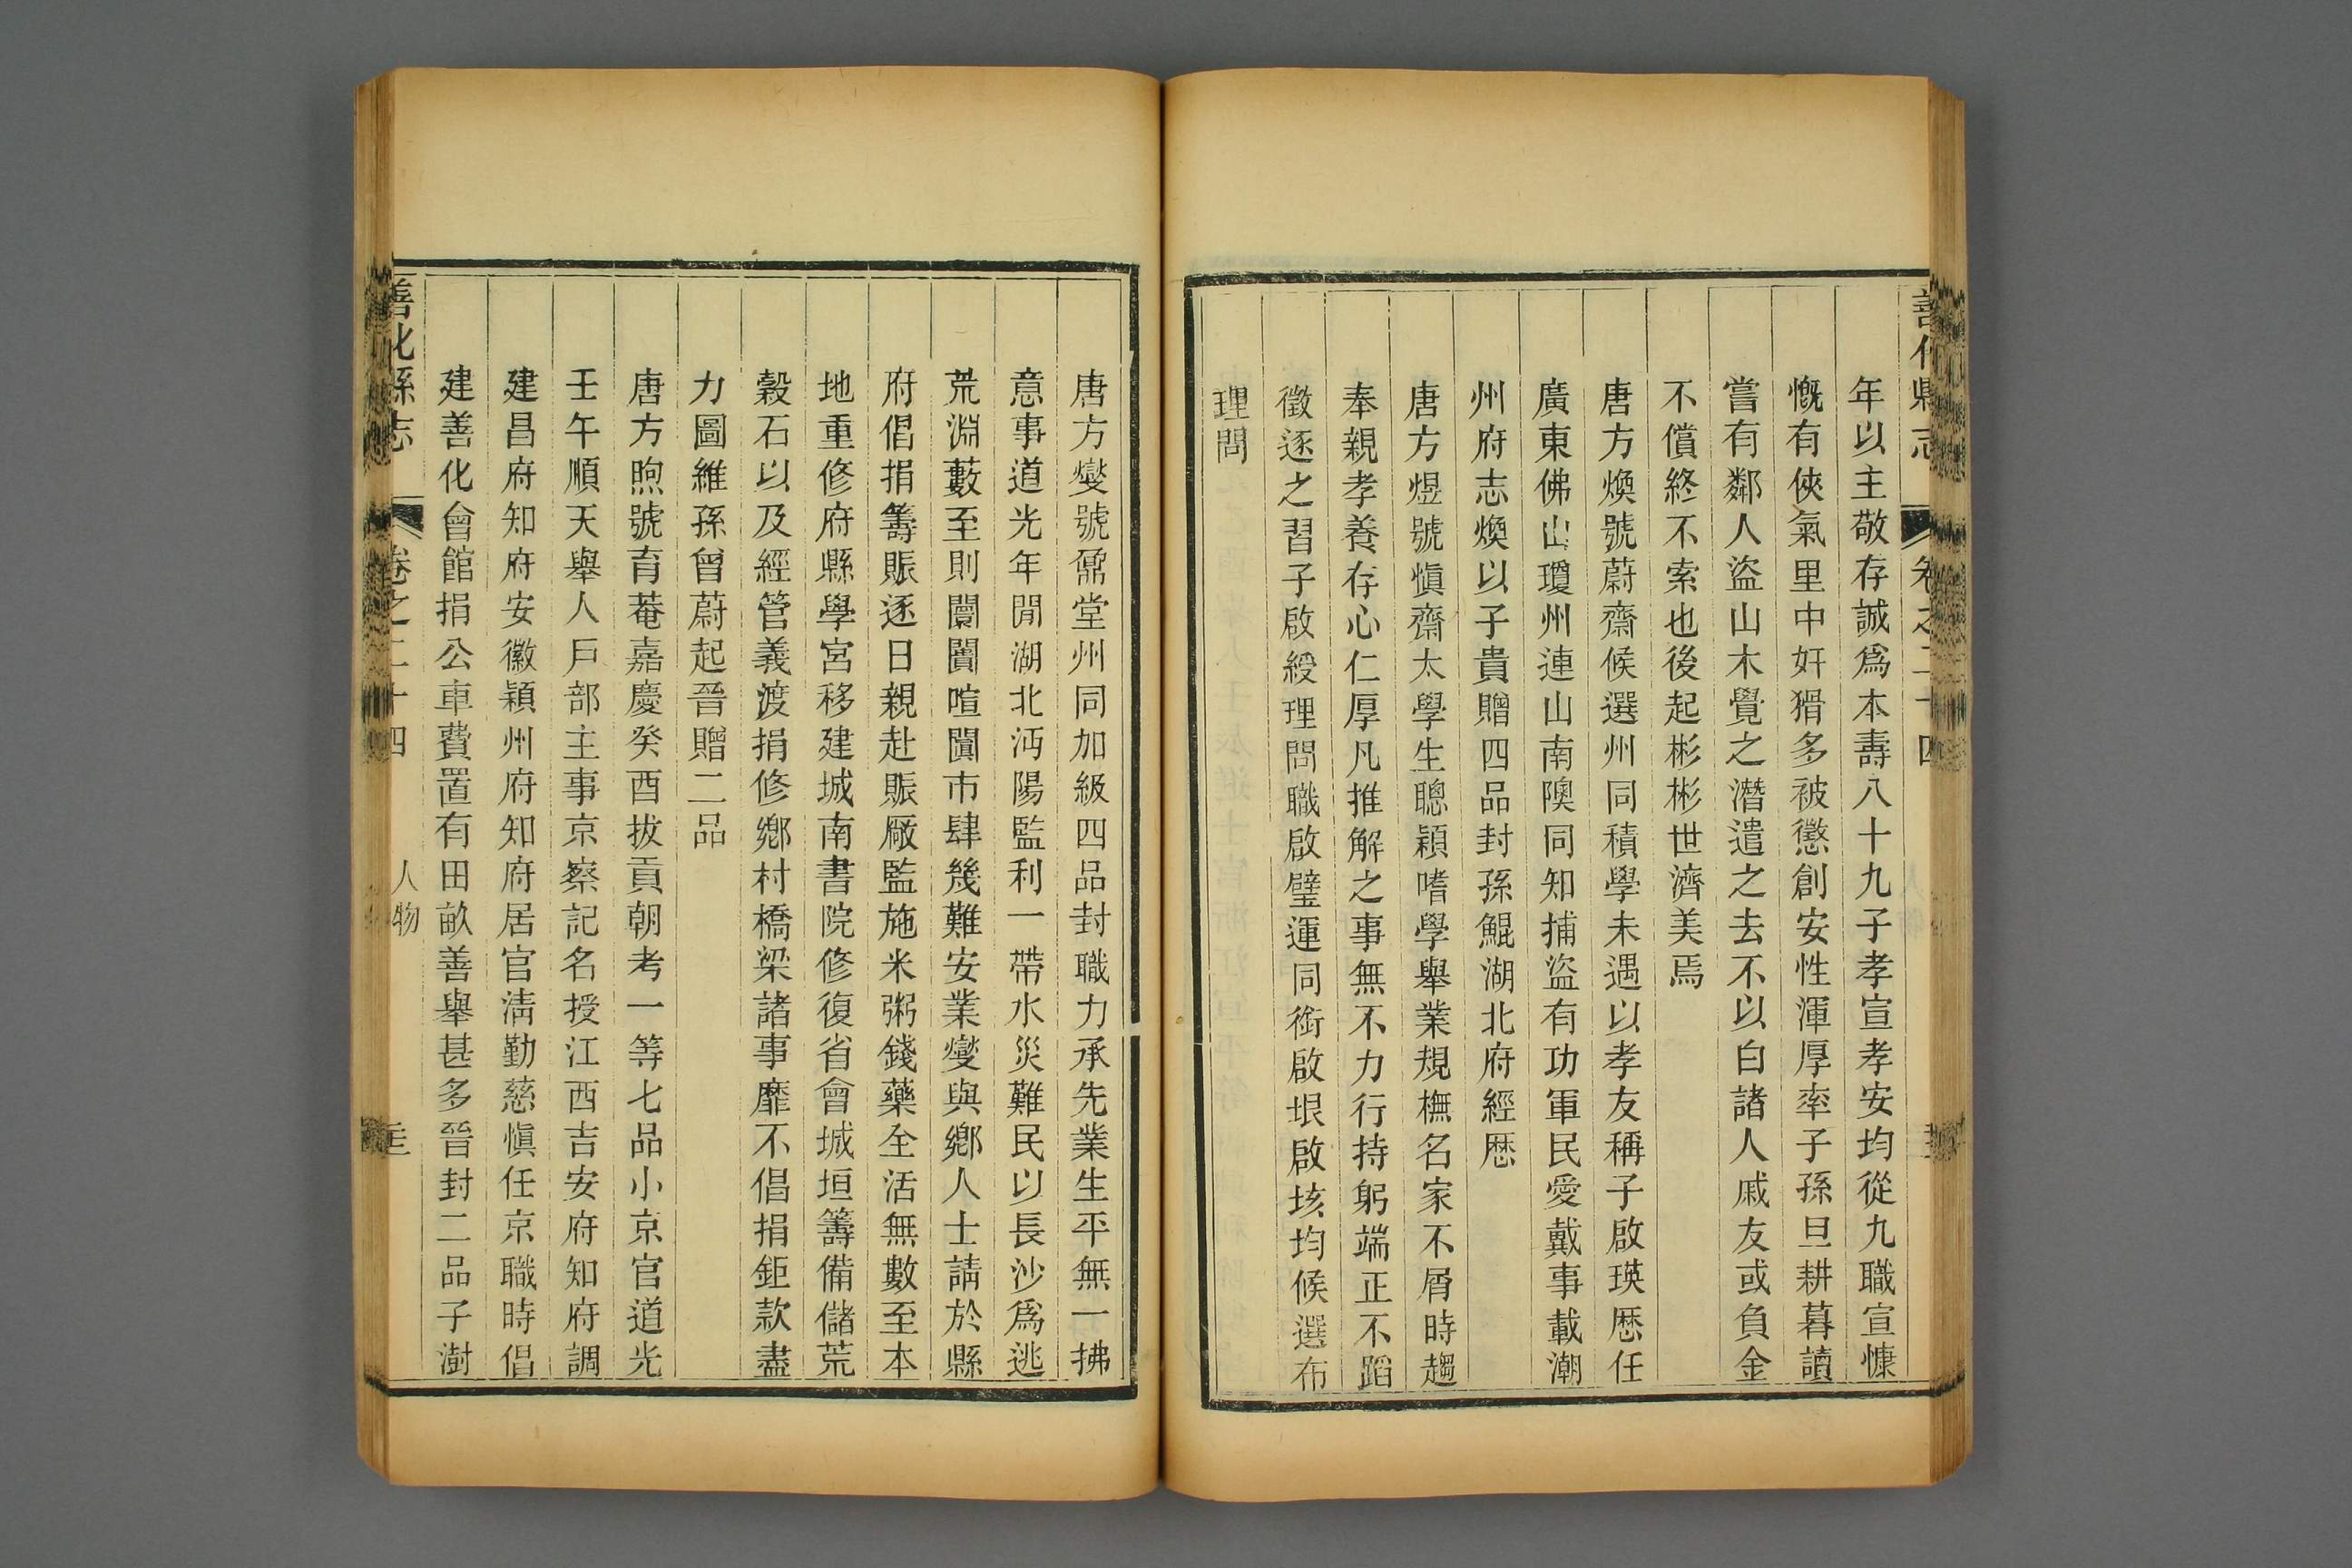 善化縣志 卷之二十四
年以主敬存誠爲本壽八十九子孝宣孝安均從九職宣慷
慨有俠氣里中奸猾多被懲創安性渾厚率子孫旦耕暮讀
嘗有鄰人盜山木覺之潛遣之去不以白諸人戚友或負金
不償終不索也後起彬彬世濟美焉
唐方煥號蔚齋候選州同積學未遇以孝友稱子啟瑛歷任
廣東佛山瓊州連山南隩同知捕盜有功軍民愛戴事載潮
州府志煥以子貴贈四品封孫鯤湖北府經歷
唐方煜號愼齋太學生聰穎嗜學舉業規橅名家不屑時趨
奉親孝養存心仁厚凡推解之事無不力行持躬端正不蹈
徵逐之習子啟綬理問職啟璧運同銜啟垠啟垓均候選布
理問
唐方燮號鼐堂州同加級四品封職力承先業生平無一拂
意事道光年閒湖北沔陽監利一帶水災難民以長沙爲逃
荒淵藪至則闤闠喧闐市肆幾難安業燮與鄉人士請於縣
府倡捐籌賑逐日親赴賑厰監施米粥錢藥全活無數至本
地重修府縣學宮移建城南書院修復省會城垣籌備儲荒
穀石以及經管義渡捐修鄉村橋梁諸事靡不倡捐鉅款盡
力圖維孫曾蔚起晉贈二品
唐方煦號育菴嘉慶癸酉拔貢朝考一等七品小京官道光
壬午順天舉人戶部主事京察記名授江西吉安府知府調
建昌府知府安徽穎州府知府居官淸勤慈愼任京職時倡
建善化會館捐公車費置有田畝善舉甚多晉封二品子澍
善化縣志 卷之二十四 人物